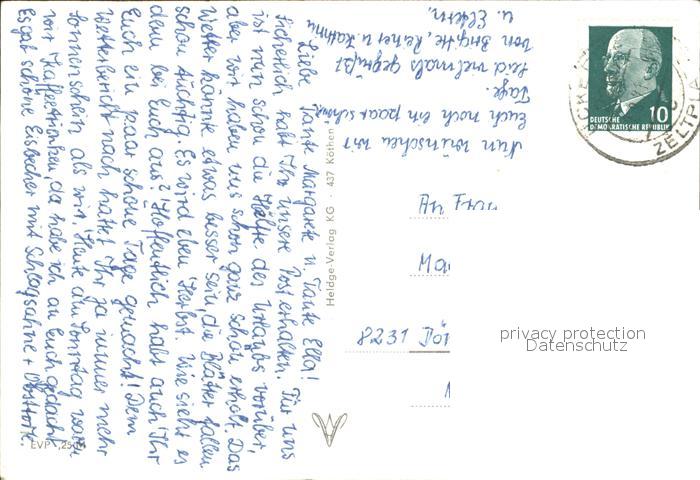 Liebe Tante Margarete u. Tante Ella!
Sicherlich habt Ihr unsere Post erhalten. Für uns
ist nun schon die Hälfte des Urlaubs vorüber,
aber wir haben uns schon ganz schön erholt. Das
Wetter könnte etwas besser sein, die Blätter fallen
schon tüchtig. Es wird eben Herbst. Wie sieht es
denn bei Euch aus? Hoffentlich habt auch Ihr
Euch ein paar schöne Tage gemacht! Dem
Wetterbericht nach hattet Ihr ja immer mehr
Sonnenschein als wir. Heute am Sonntag waren
wir Kaffeetrinken, da habe ich an Euch gedacht
Es gab schöne Eisbecher mit Schlagsahne + Obsttorte.
Nun wünschen wir
Euch noch ein paar schöne
Tage.
Seid vielmals gegrüßt
von Brigitte, Reiner u. Kathrin
u. Eltern.
DEUTSCHE
DEMOKRATISCHE REPUBLIK
10
ZELTPLA
An Frau
Ma
8231
Heldge-Verlag KG · 437 Köthen
EVP
privacy protection
Datenschutz